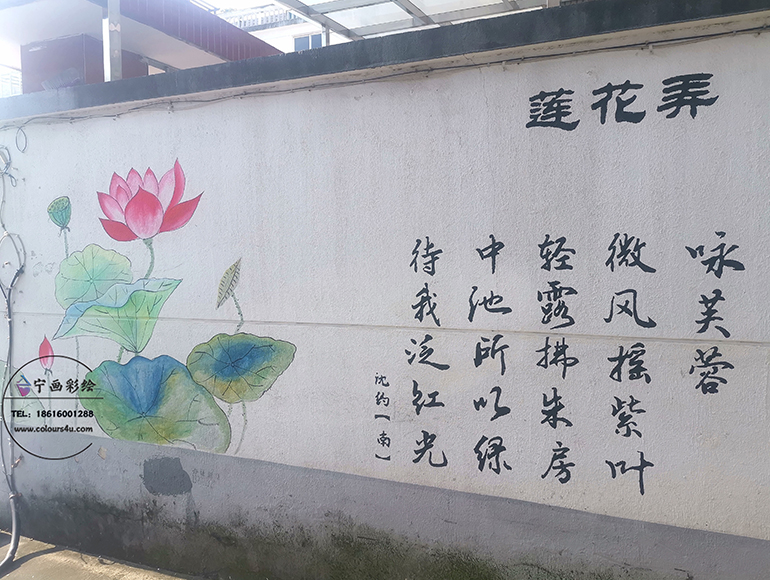 莲花弄
咏芙蓉
微风摇紫叶
轻露拂朱房
中池所以绿
待我泛红光
沈约【南】
宁画彩绘
TEL：18616001288
www.colours4u.com